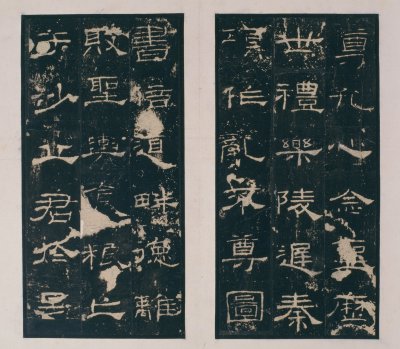 尊孔心念聖歷
世禮樂陵遲秦
項作亂不尊圖
書倍道畔德離
敗聖輿食糧亡
于沙丘君於是